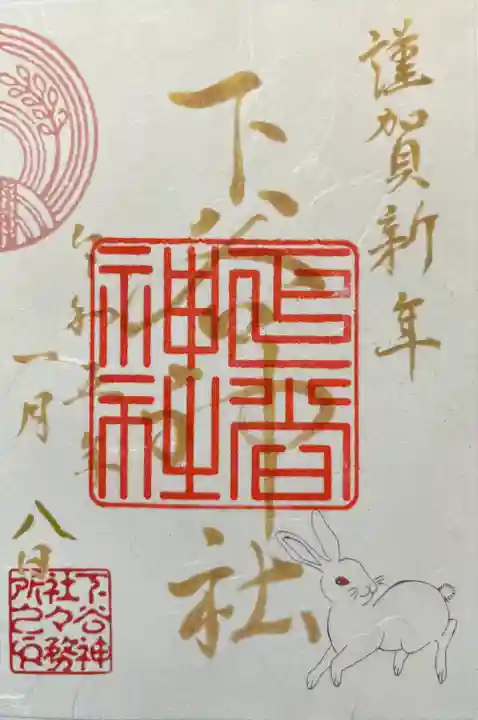 謹賀新年
下谷神社
下谷
神社
令和五年
一月
八日
下谷神
社々務
所之印